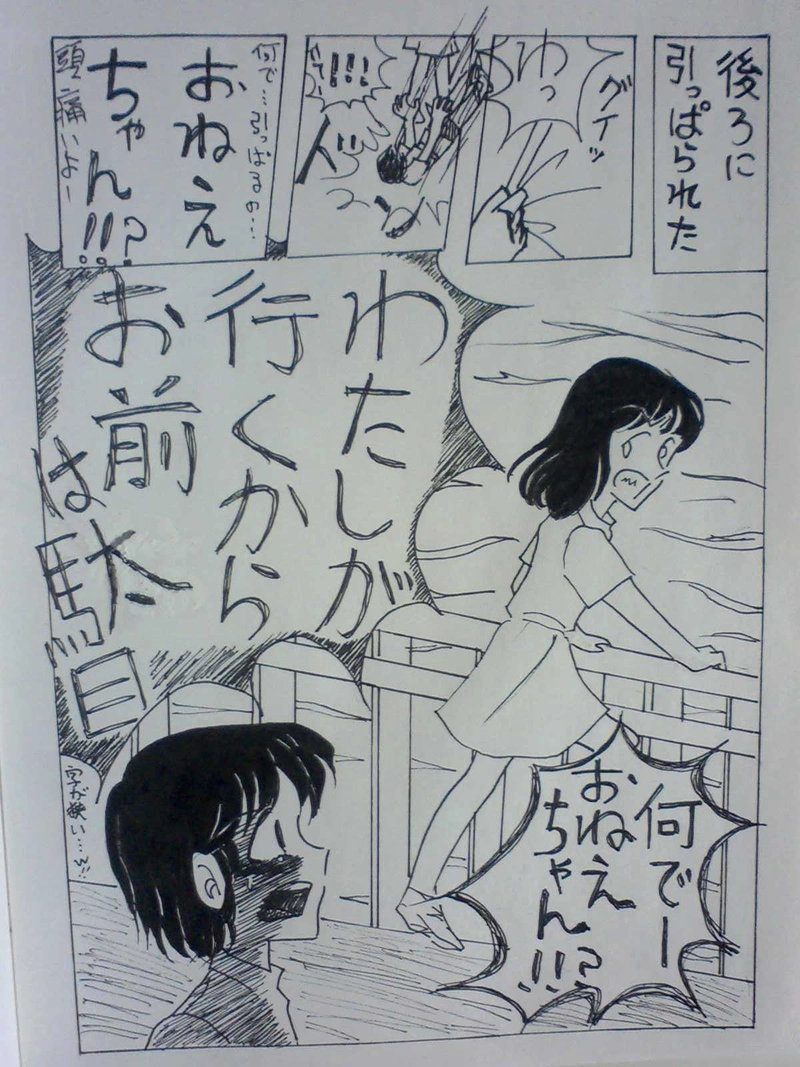 後ろに
引っぱられた
グイッ
わっ
!!!
ドン
何で…引っぱるの…
おねえ
ちゃん!!?
頭痛いよー
わたしが
行くから
お前は駄目
何でー
おねえ
ちゃん!!?
字が狭い…w